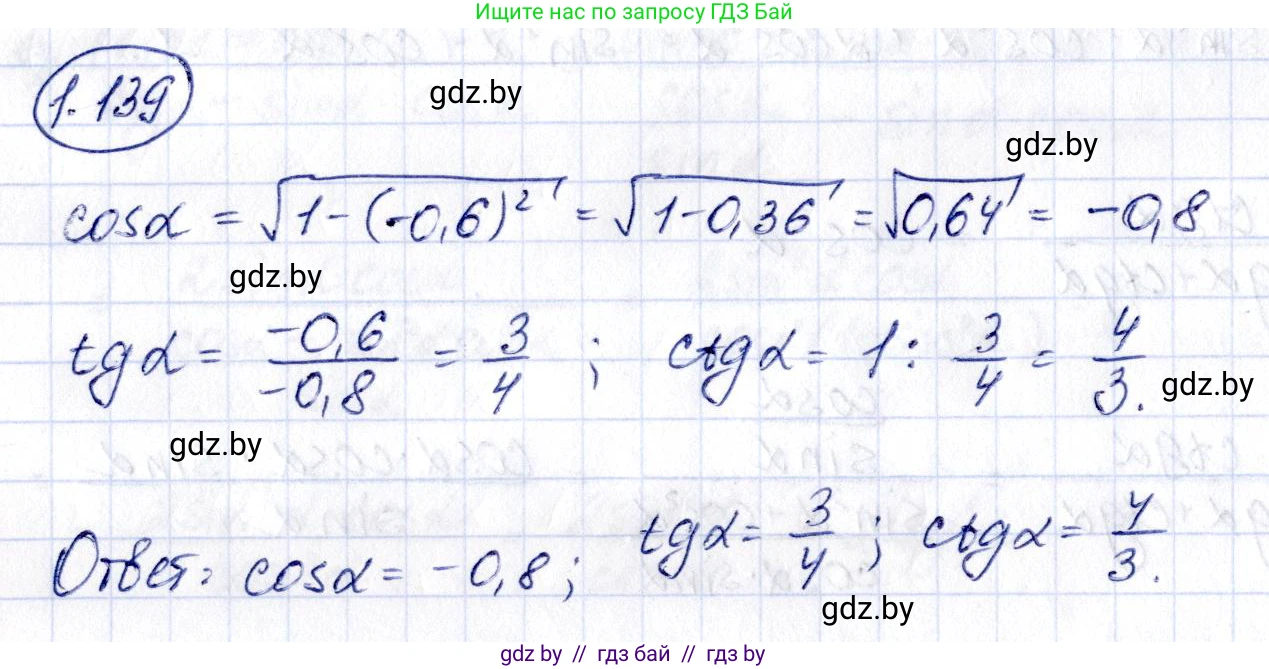 Ищите нас по запросу ГДЗ Бай
1.139
gdz.by
gdz.by
cosα = √(1-(-0,6)²) = √(1-0,36) = √0,64 = -0,8
gdz.by
tgα = -0,6/-0,8 = 3/4 ; ctgα = 1 : 3/4 = 4/3.
gdz.by
gdz.by
Ответ: cosα = -0,8; tgα = 3/4; ctgα = 4/3.
gdz.by
gdz by // гдз бай // гдз by